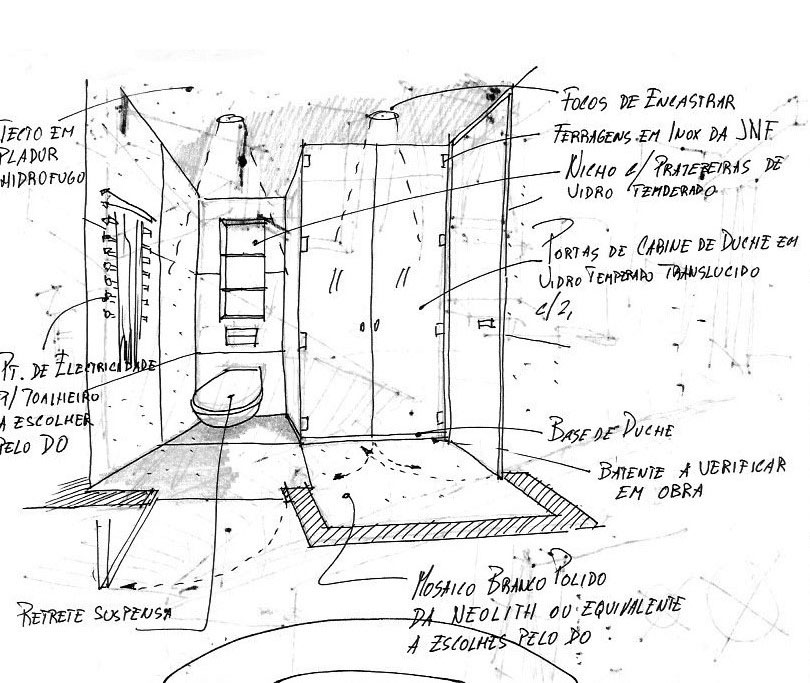 FOCOS DE ENCASTRAR
FERRAGENS EM INOX DA JNF
NICHO C/ PRATELEIRAS DE
VIDRO TEMPERADO
PORTAS DE CABINE DE DUCHE EM
VIDRO TEMPERADO TRANSLUCIDO
C/2,
BASE DE DUCHE
BATENTE A VERIFICAR
EM OBRA
TECTO EM
PLADUR
HIDROFUGO
PT. DE ELECTRICIDADE
P/ TOALHEIRO
A ESCOLHER
PELO DO
RETRETE SUSPENSA
MOSAICO BRANCO POLIDO
DA NEOLITH OU EQUIVALENTE
A ESCOLHES PELO DO